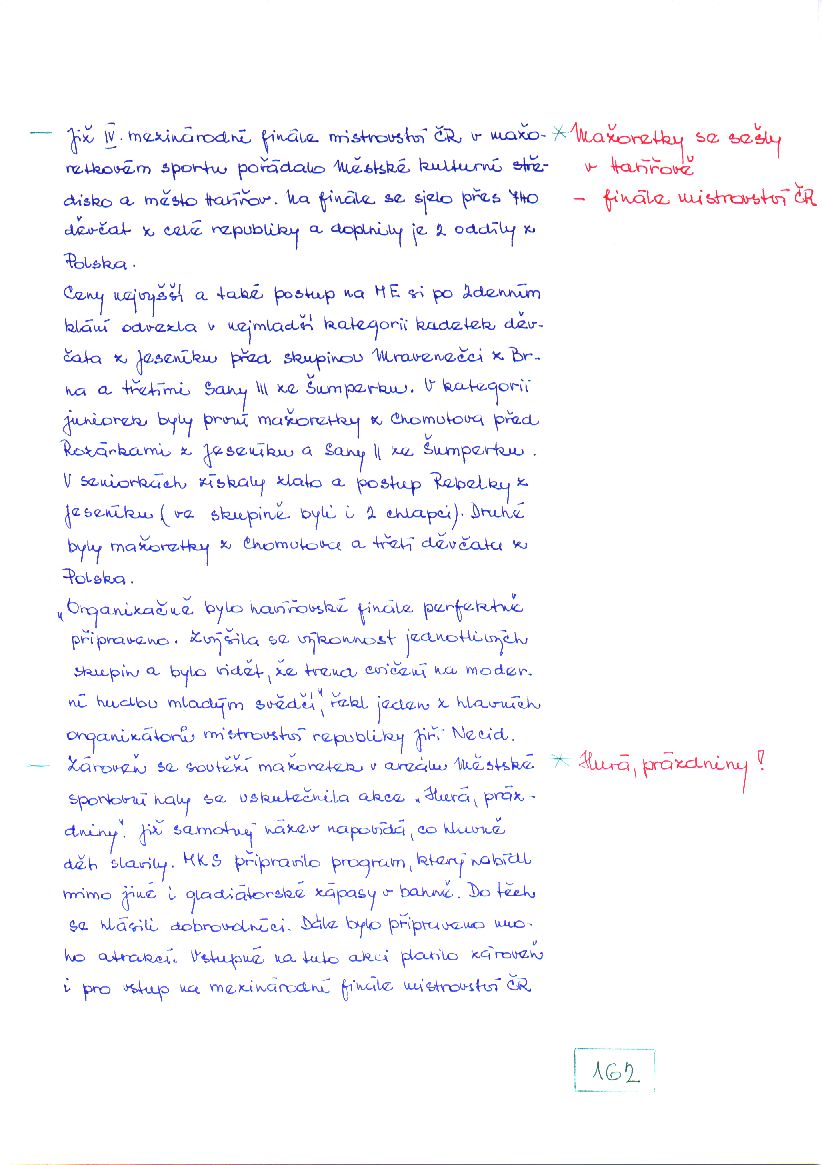 Již IV. mezinárodní finále mistrovství ČR v mažo-
retkovém sportu pořádalo Městské kulturní stře-
disko a město Havířov. Na finále se sjelo přes 740
děvčat z celé republiky a doplnily je 2 oddíly z
Polska.
Ceny nejvyšší a také postup na ME si po 2denním
klání odvezla v nejmladší kategorii kadetek děv-
čata z Jeseníku před skupinou Mravenečci z Br-
na a třetími Sany III ze Šumperku. V kategorii
juniorek byly první mažoretky z Chomutova před
Rozárkami z Jeseníku a Sany II ze Šumperku.
V seniorkách získaly zlato a postup Rebelky z
Jeseníku (ve skupině byli i 2 chlapci). Druhé
byly mažoretky z Chomutova a třetí děvčata z
Polska.
„Organizačně bylo havířovské finále perfektně
připraveno. Zvýšila se výkonnost jednotlivých
skupin a bylo vidět, že trend cvičení na moder-
ní hudbu mladým svědčí", řekl jeden z hlavních
organizátorů mistrovství republiky Jiří Necid.
Zároveň se soutěží mažoretek v areálu Městské
sportovní haly se uskutečnila akce „Hurá, práz-
dniny". Již samotný název napovídá, co hlavně
děti slavily. MKS připravilo program, který nabídl
mimo jiné i gladiátorské zápasy v bahně. Do těch
se hlásili dobrovolníci. Dále bylo připraveno mno-
ho atrakcí. Vstupné na tuto akci platilo zároveň
i pro vstup na mezinárodní finále mistrovství ČR
Mažoretky se sešly
v Havířově
- finále mistrovství ČR
Hurá, prázdniny!
162